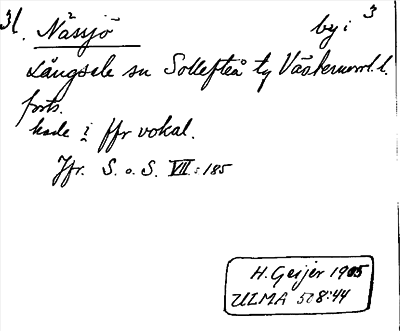 3l. Nässjö by i 3
Långsele sn Sollefteå tg Västernorrl. l.
forts.
hade i ffr vokal.
Jfr. S. o. S. VII: 185
H. Geijer 1905
ULMA 528:44